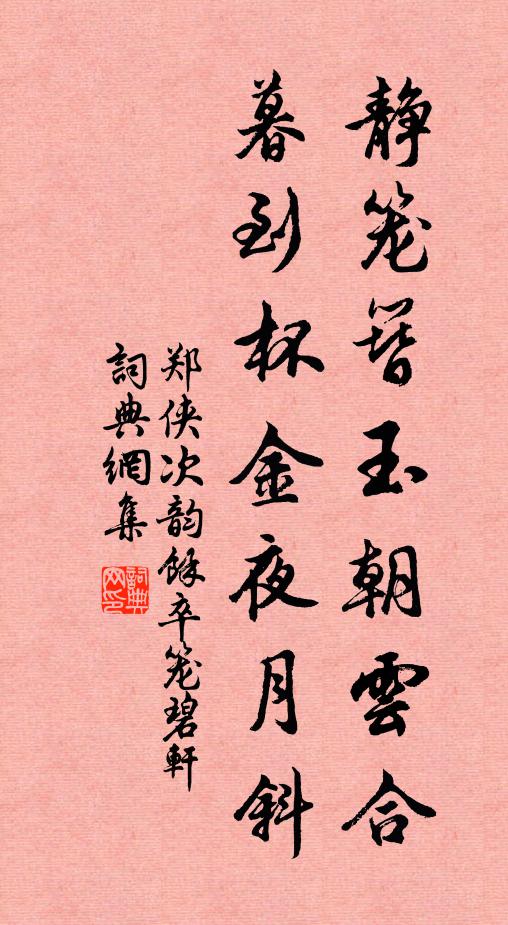 静笼簪玉朝雲合
暮到杯金夜月斜
郑侠次韵馀卒笼碧軒
詞典網集
詞典网印